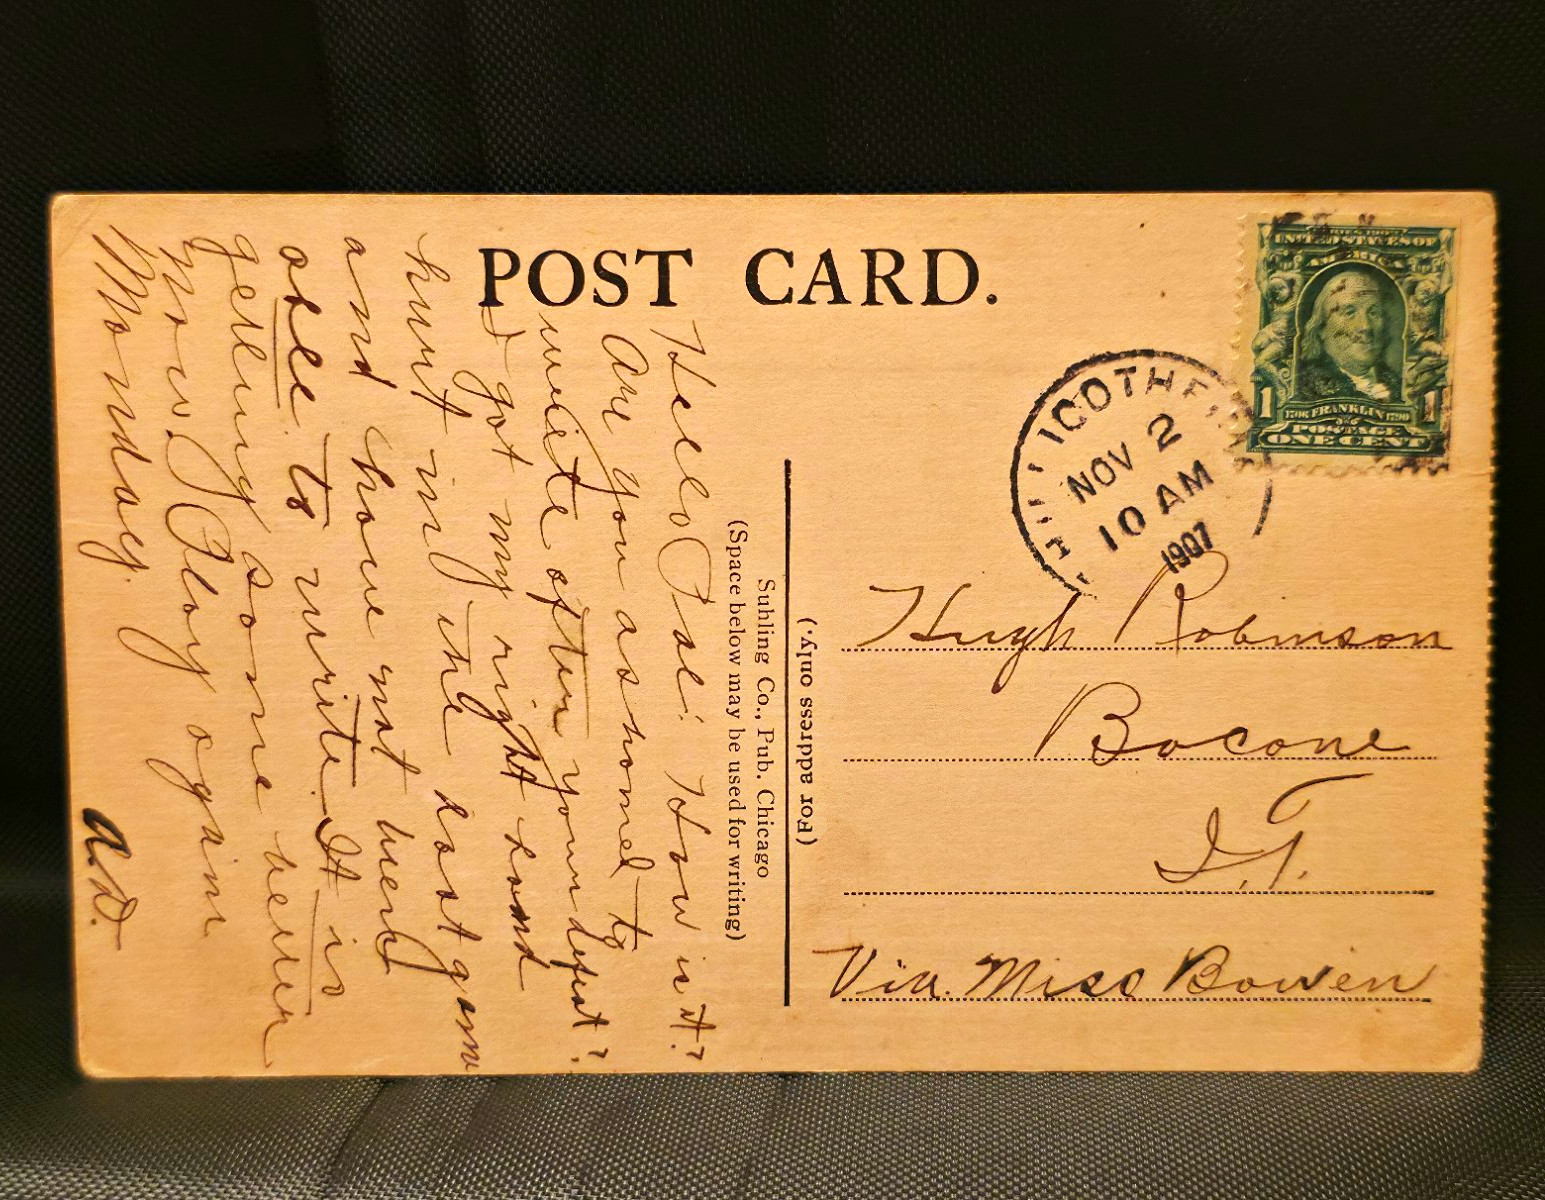 POST CARD.
UNITED STATES OF
AMERICA
1706 FRANKLIN 1790
1 1
POSTAGE
ONE CENT
ICOTHE
NOV 2
10 AM
1907
Suhling Co., Pub. Chicago
(Space below may be used for writing)
(For address only.)
Hugh Robinson
Bacone
I.T.
Via. Miss Bowen
Hello How is it?
Are you ashamed to
write after your defeat?
I got my right hand
hurt in the last game
and have not been
able to write. It is
getting some better
now. Play again
Monday.
A.D.